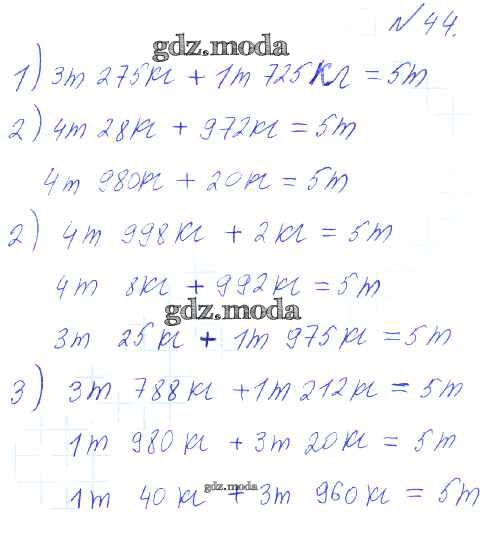 № 44.
gdz.moda
1) 3т 275кг + 1т 725кг = 5т
2) 4т 28кг + 972кг = 5т
4т 980кг + 20кг = 5т
2) 4т 998кг + 2кг = 5т
4т 8кг + 992кг = 5т
gdz.moda
3т 25кг + 1т 975кг = 5т
3) 3т 788кг + 1т 212кг = 5т
1т 980кг + 3т 20кг = 5т
gdz.moda
1т 40кг + 3т 960кг = 5т